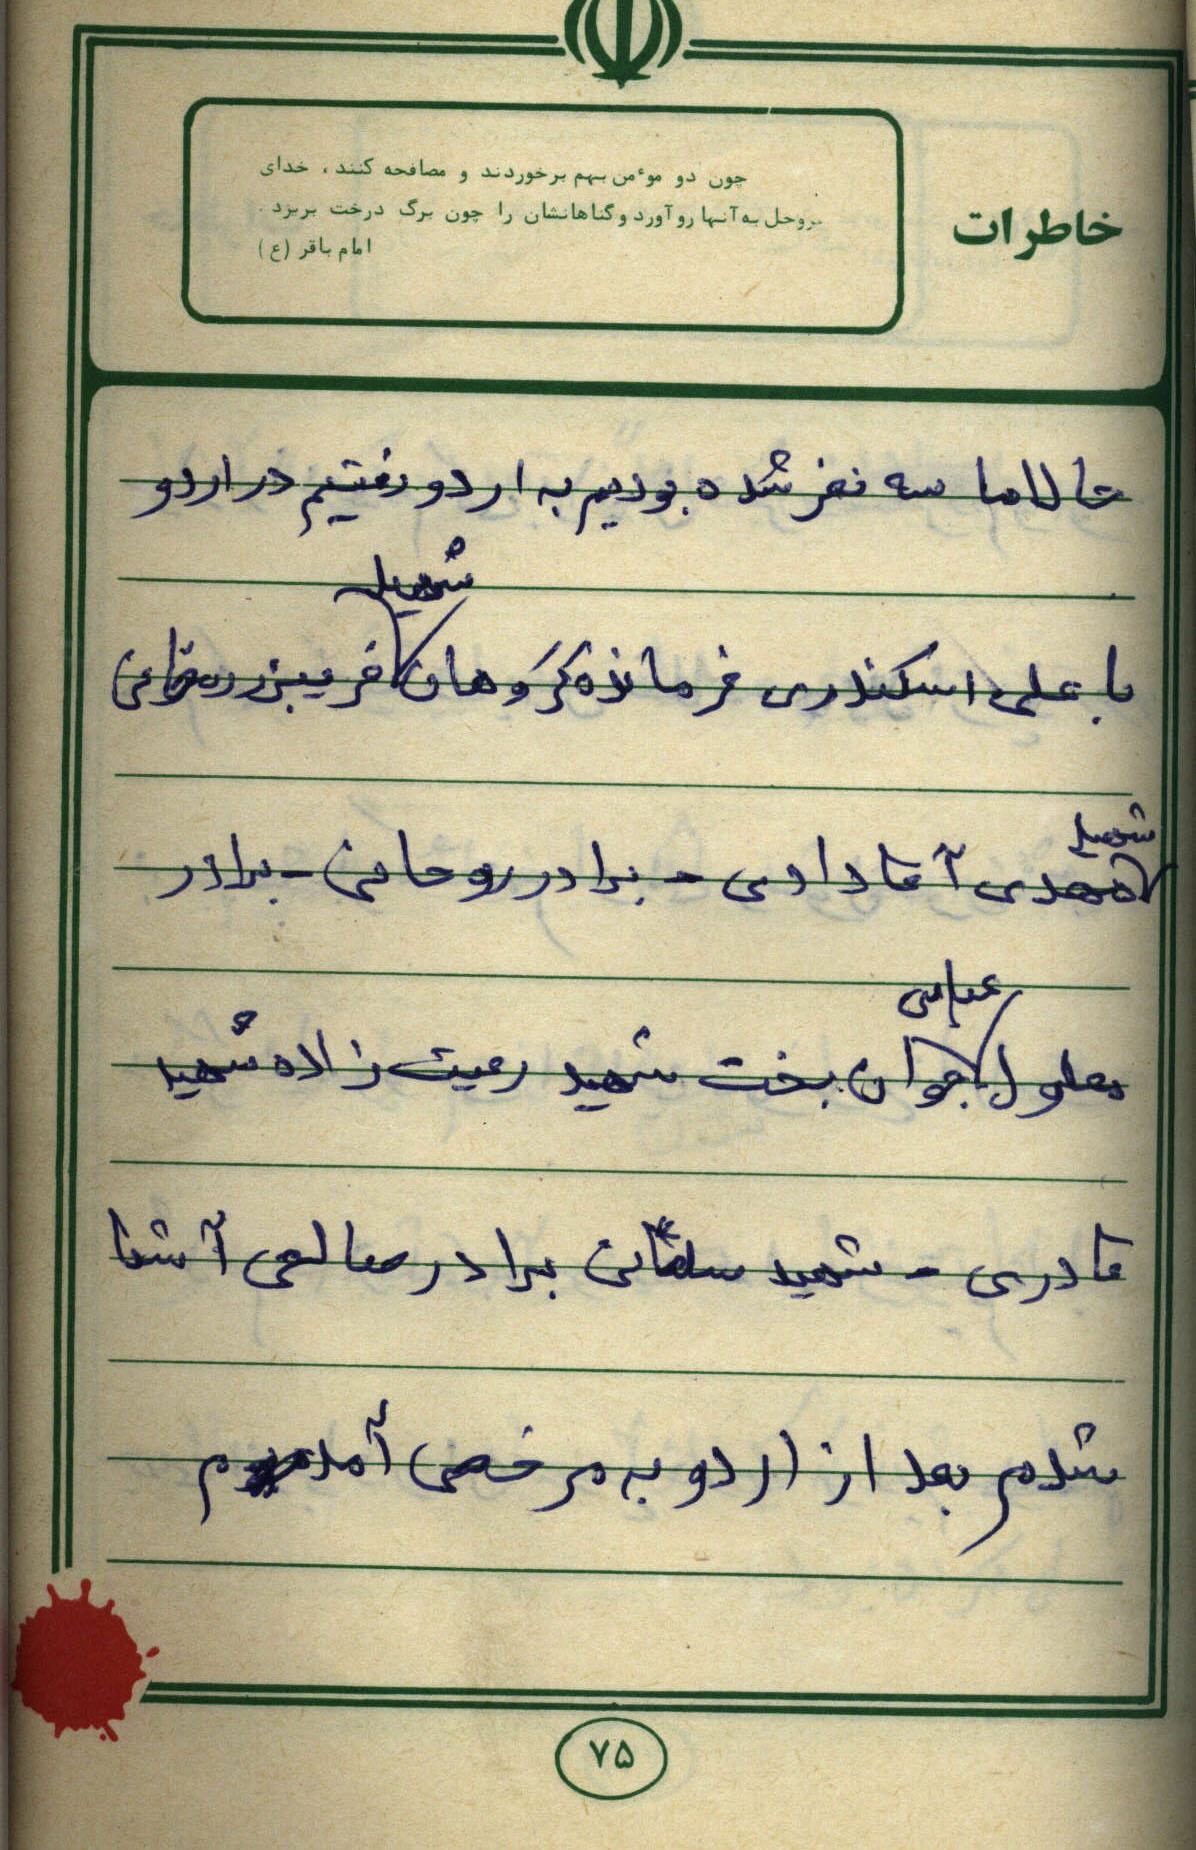 خاطرات
چون دو موٴمن بهم برخوردند و مصافحه کنند ، خدای
عزوجل به آنها رو آورد و گناهانشان را چون برگ درخت بریزد .
امام باقر (ع)
حالا ما سه نفر شده بودیم به اردو رفتیم در اردو
شهید
با علی اسکندری فرمانده گروهان فریبرز
شهید
مهدی آقادادی - برادر روحانی - برادر
عباس
معلول جوان بخت شهید رعیت زاده شهید
قادری - شهید سلمانی برادر صالحی آشنا
شدم بعد از اردو به مرخصی آمدم
۷۵